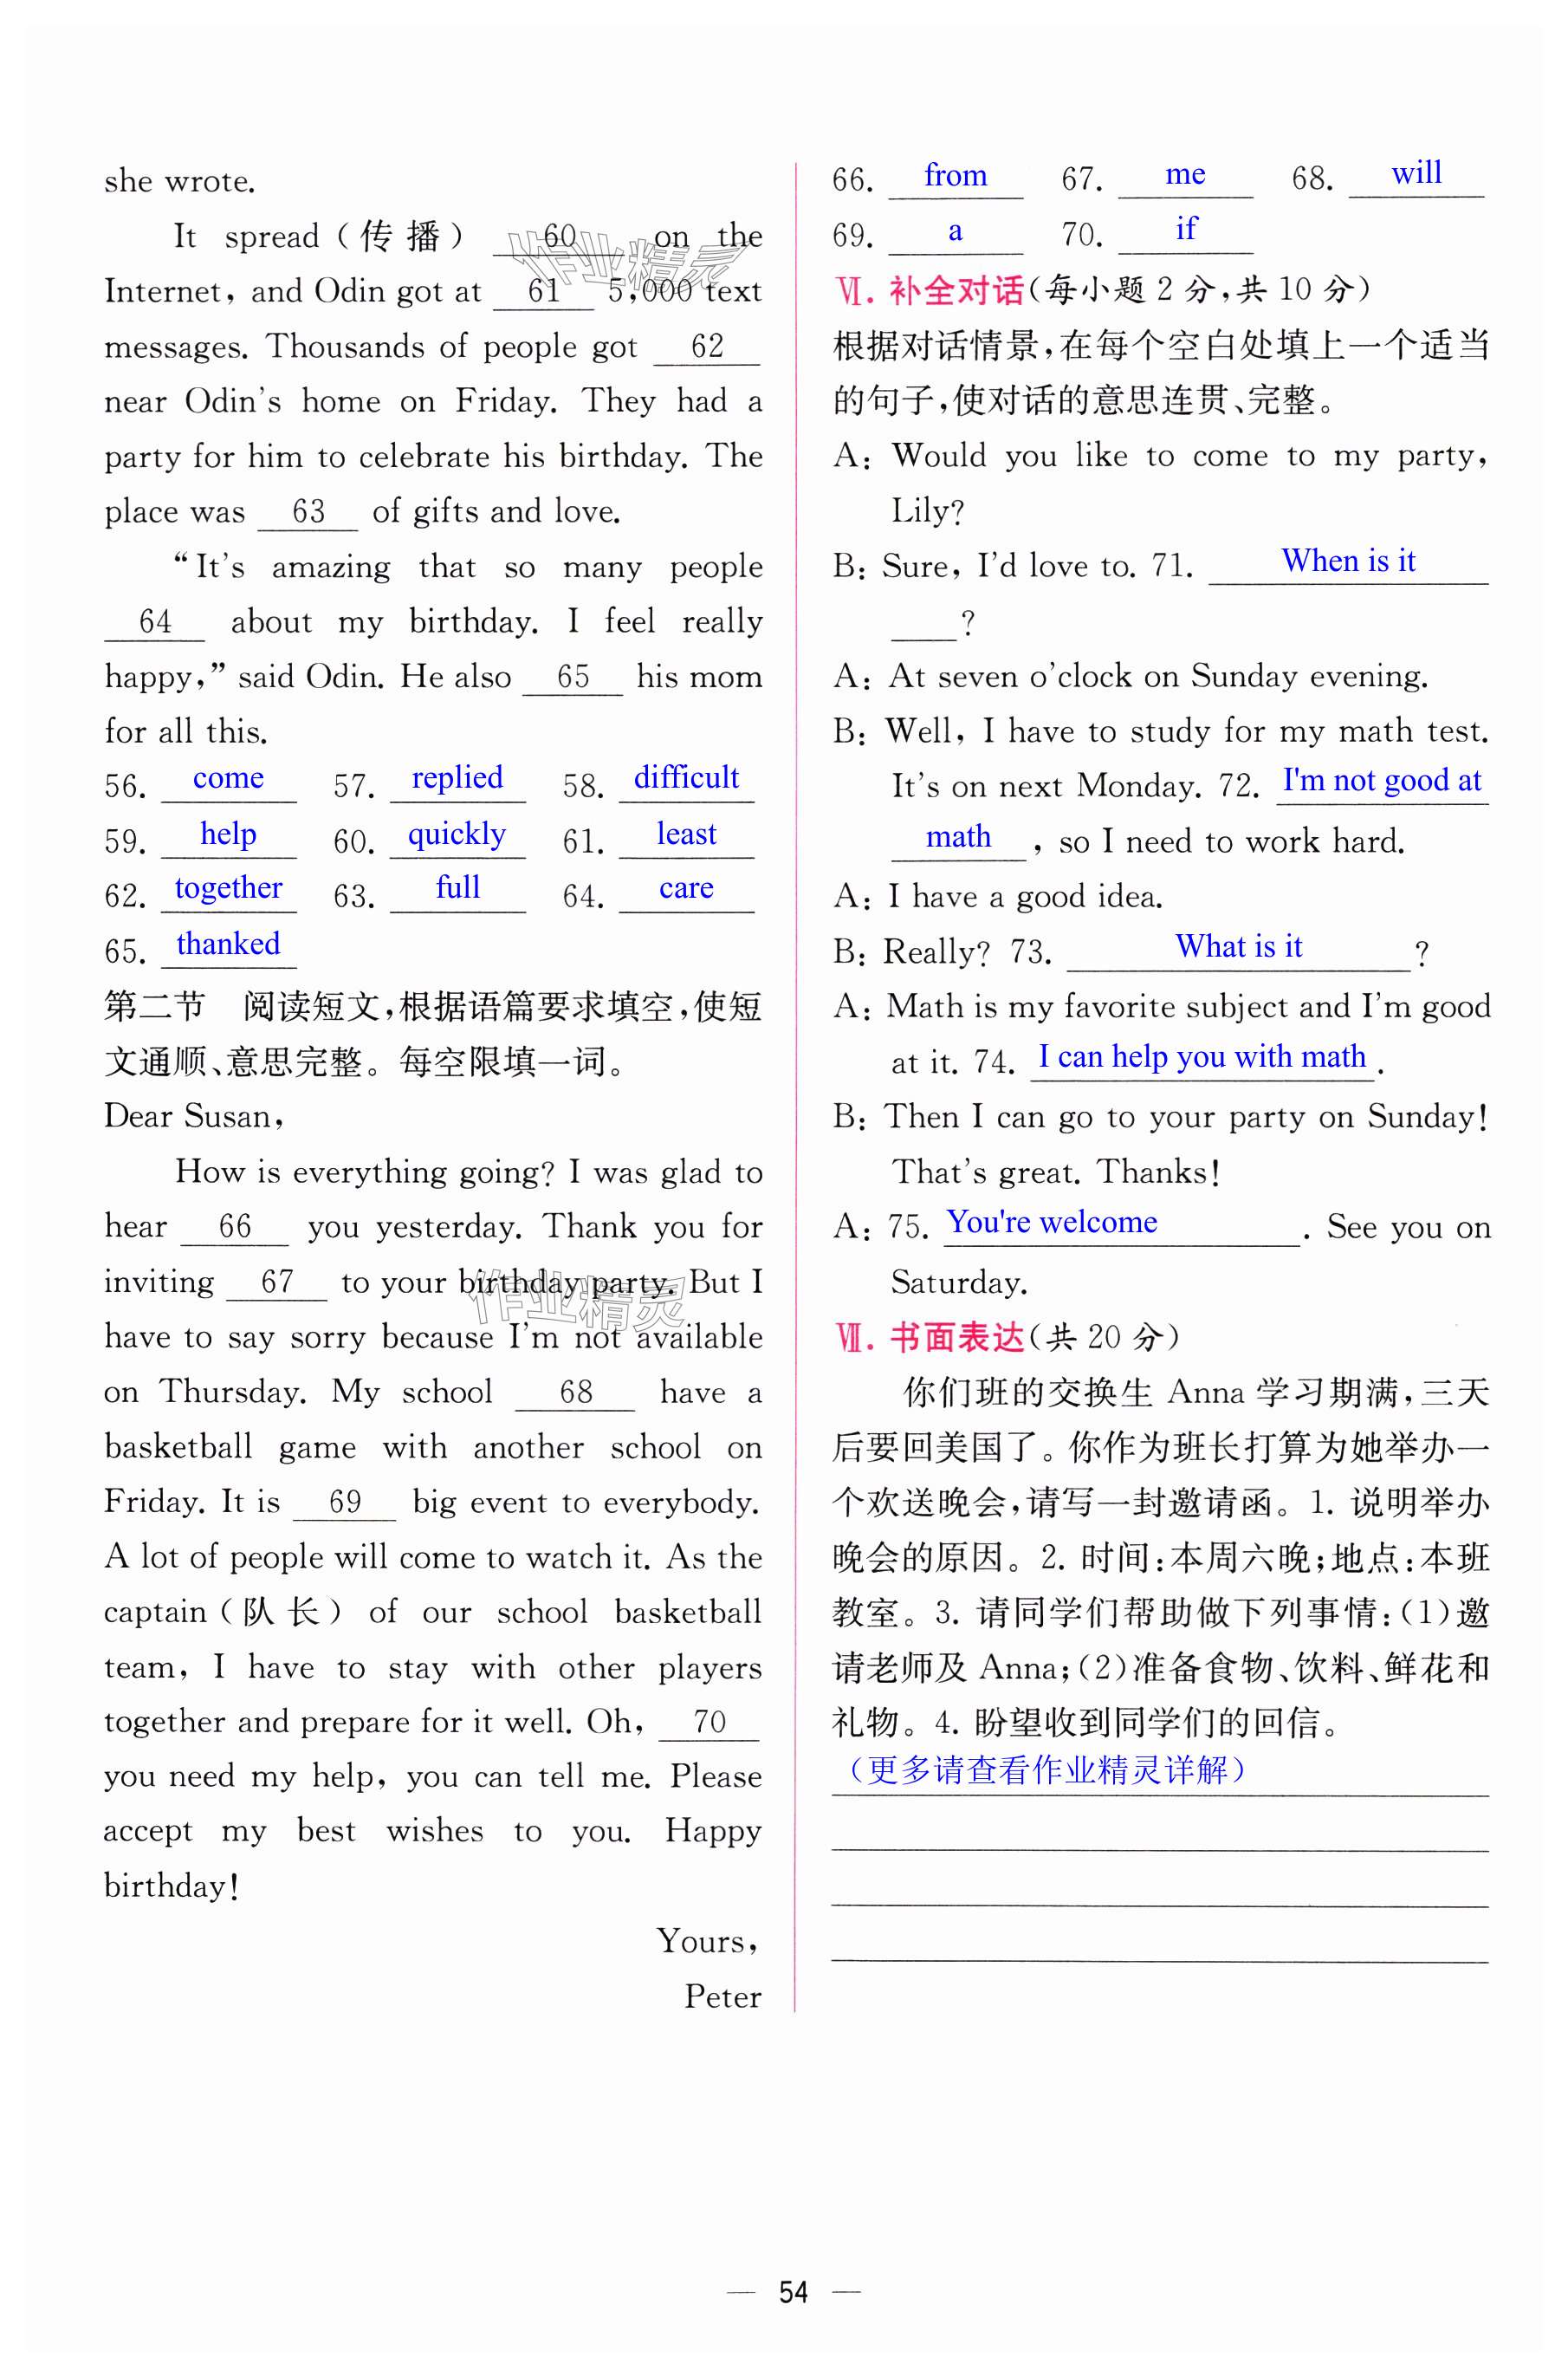 she wrote.
It spread（传播） 60 on the
Internet, and Odin got at 61 5,000 text
messages. Thousands of people got 62
near Odin's home on Friday. They had a
party for him to celebrate his birthday. The
place was 63 of gifts and love.
“It's amazing that so many people
64 about my birthday. I feel really
happy,” said Odin. He also 65 his mom
for all this.
56. come 57. replied 58. difficult
59. help 60. quickly 61. least
62. together 63. full 64. care
65. thanked
第二节 阅读短文,根据语篇要求填空,使短
文通顺、意思完整。每空限填一词。
Dear Susan,
How is everything going? I was glad to
hear 66 you yesterday. Thank you for
inviting 67 to your birthday party. But I
have to say sorry because I'm not available
on Thursday. My school 68 have a
basketball game with another school on
Friday. It is 69 big event to everybody.
A lot of people will come to watch it. As the
captain（队长） of our school basketball
team, I have to stay with other players
together and prepare for it well. Oh, 70
you need my help, you can tell me. Please
accept my best wishes to you. Happy
birthday!
Yours,
Peter
作业精灵
作业精灵
66. from 67. me 68. will
69. a 70. if
Ⅵ. 补全对话(每小题 2 分,共 10 分)
根据对话情景,在每个空白处填上一个适当
的句子,使对话的意思连贯、完整。
A: Would you like to come to my party,
Lily?
B: Sure, I'd love to. 71. When is it
?
A: At seven o'clock on Sunday evening.
B: Well, I have to study for my math test.
It's on next Monday. 72. I'm not good at
math , so I need to work hard.
A: I have a good idea.
B: Really? 73. What is it ?
A: Math is my favorite subject and I'm good
at it. 74. I can help you with math .
B: Then I can go to your party on Sunday!
That's great. Thanks!
A: 75. You're welcome . See you on
Saturday.
Ⅶ. 书面表达(共 20 分)
你们班的交换生 Anna 学习期满,三天
后要回美国了。你作为班长打算为她举办一
个欢送晚会,请写一封邀请函。1. 说明举办
晚会的原因。2. 时间:本周六晚;地点:本班
教室。3. 请同学们帮助做下列事情:(1)邀
请老师及 Anna;(2)准备食物、饮料、鲜花和
礼物。4. 盼望收到同学们的回信。
（更多请查看作业精灵详解）
— 54 —